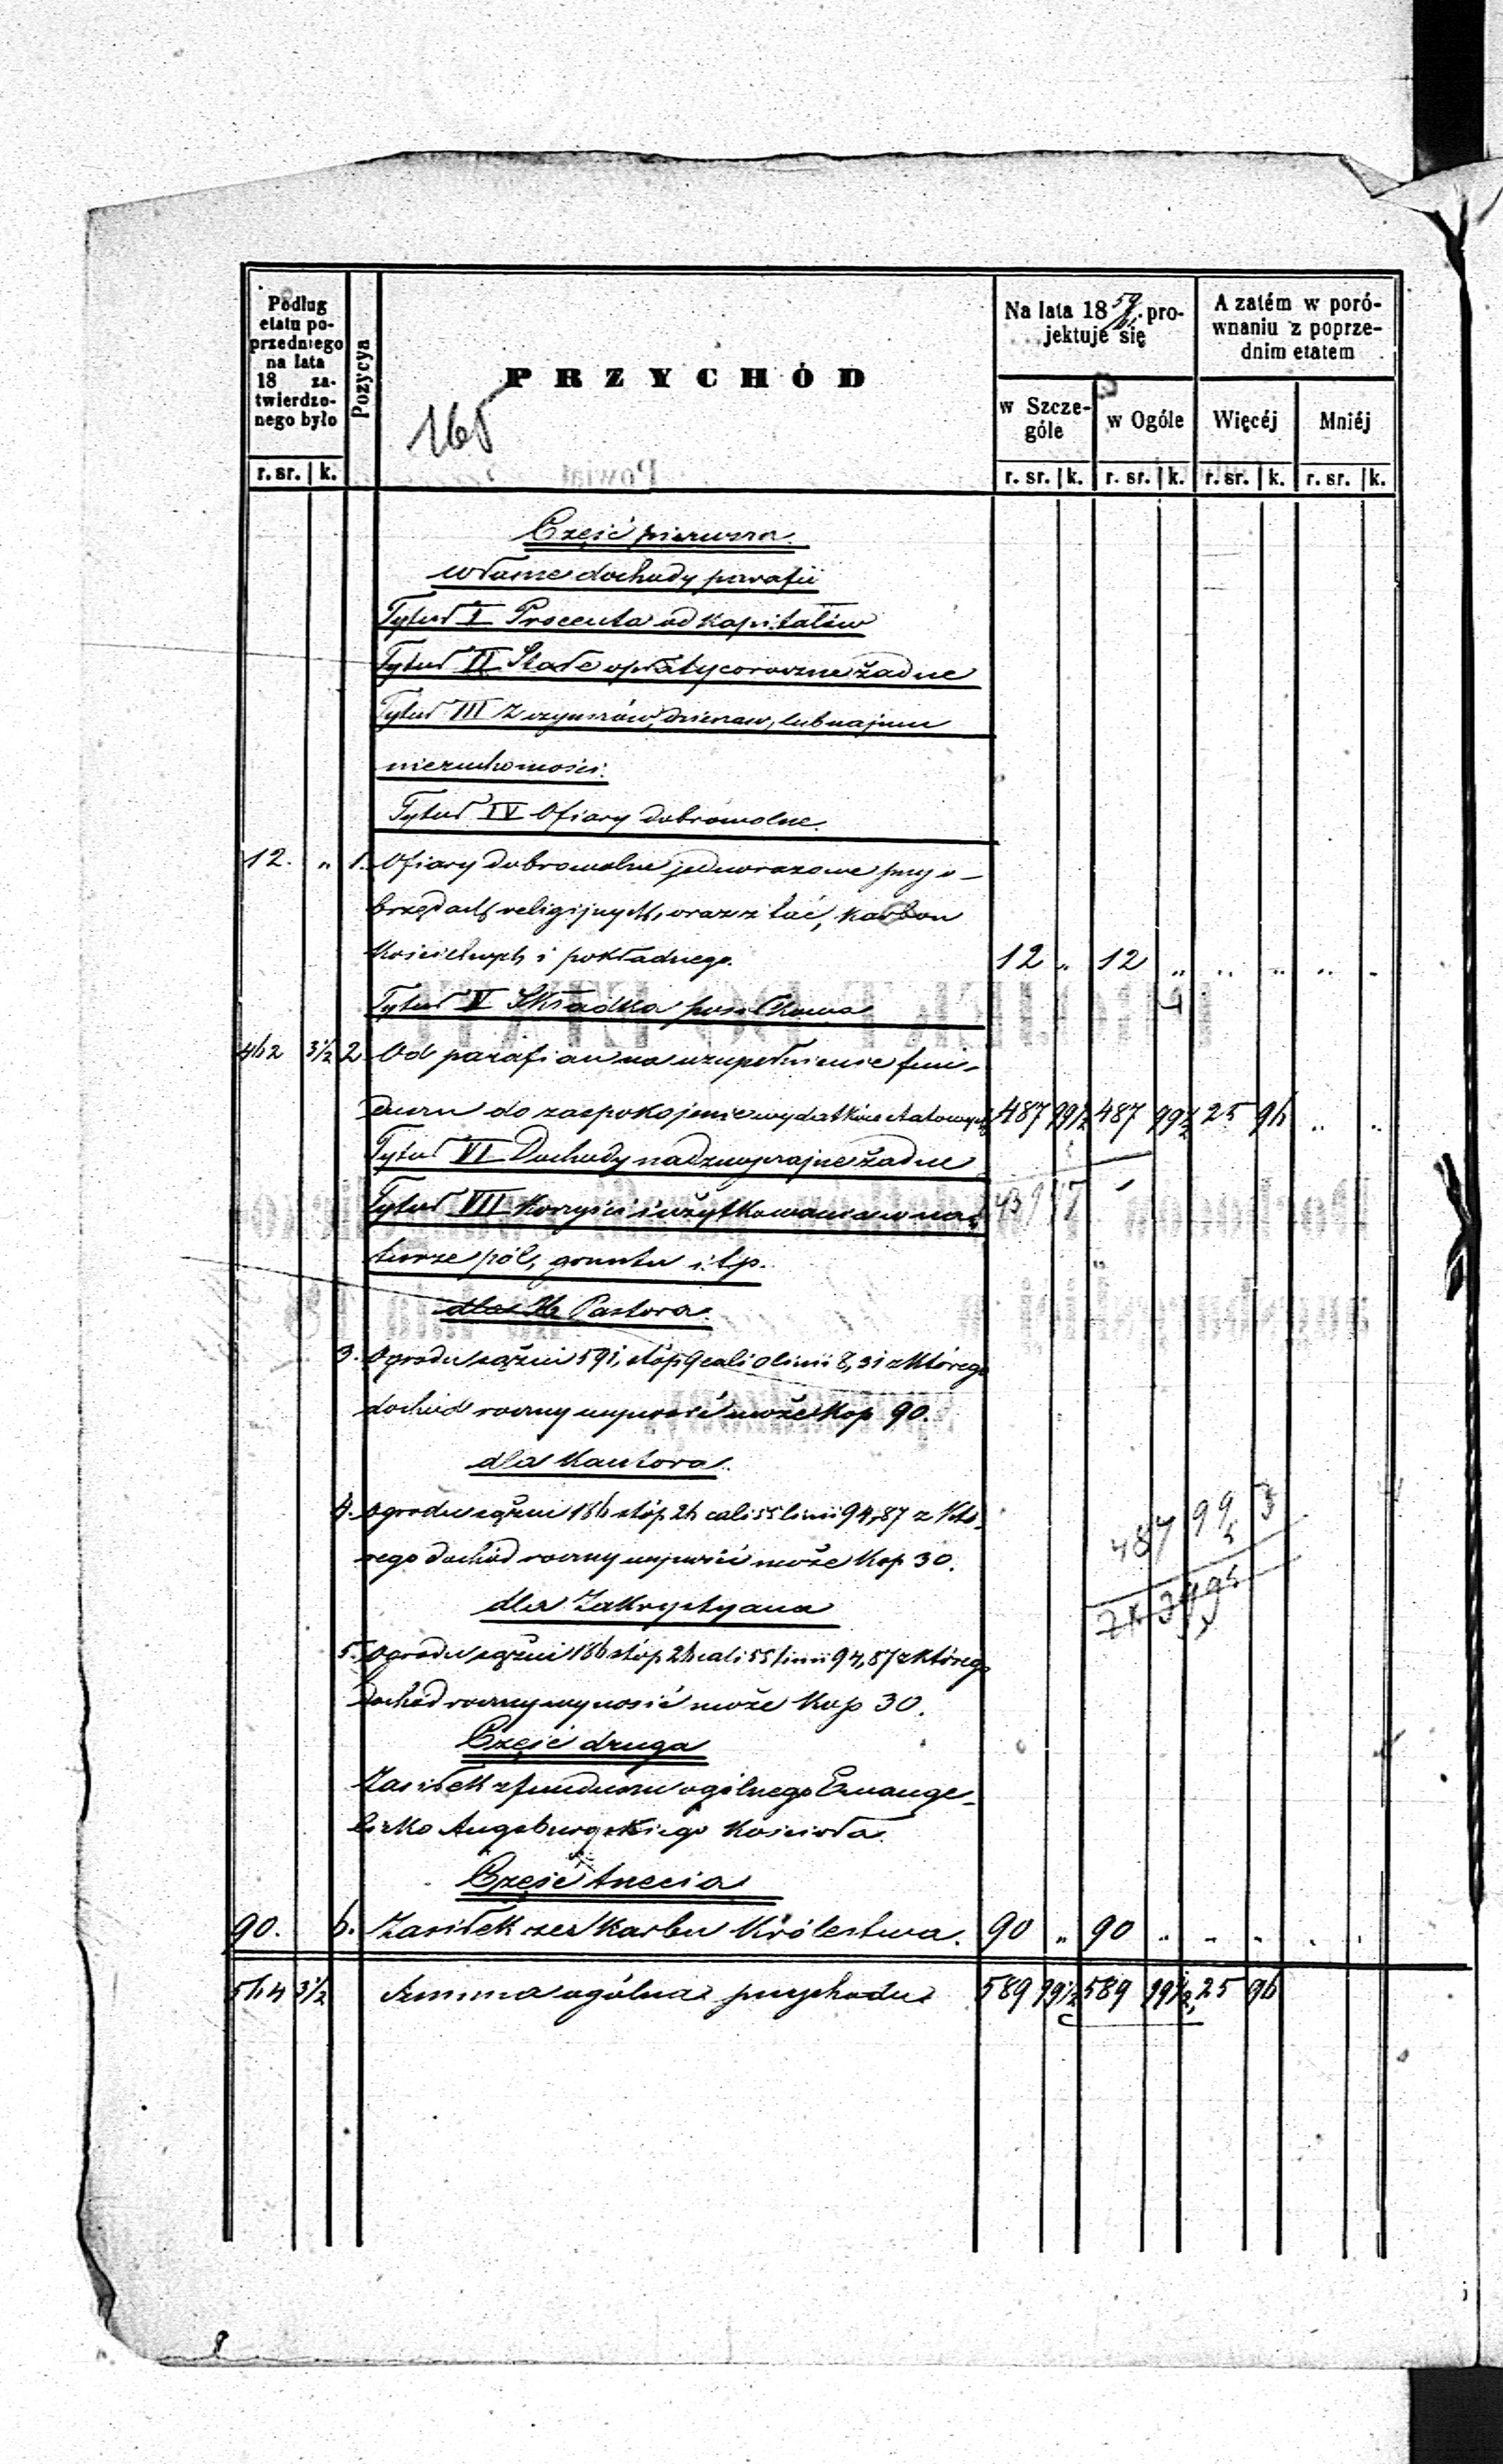 Podług
etatu po-
przedniego
na lata
18 za-
twierdzo-
nego było
r. sr. k.
Pozycya
PRZYCHÓD
165
Na lata 18 59/61 pro-
jektuje się
w Szcze-
góle
w Ogóle
r. sr. k. r. sr. k.
A zatém w poró-
wnaniu z poprze-
dnim etatem
Więcéj
Mniéj
r. sr. k. r. sr. k.
Część pierwsza.
Własne dochody parafii
Tytuł I Procenta od kapitałów
Tytuł II Stałe opłaty coroczne żadne
Tytuł III Z czynszów, dzierżaw, lub najmu
nieruchomości.
Tytuł IV Ofiary dobrowolne.
12. „ 1. Ofiary dobrowolne jednorazowe przy o-
brzędach religijnych, oraz z tac, karbon
kościelnych i pokładnego. 12 „ 12 „ „ „ „ „
Tytuł V Składka posiłkowa
462 3½ 2 Od parafian na uzupełnienie fun-
duszu do zaspokojenie wydatków etatowych 487 99½ 487 99½ 25 96 „ „
Tytuł VI Dochody nadzwyczajne żadne
Tytuł VII Korzyści i użytkowania w na-
turze pól, gruntu i t.p.
dla Pastora.
3. Ogrodu sążni 591, stóp 9 cali 0 linii 8,31 z którego
dochód roczny wynosić może kop 90.
dla Kantora.
4. Ogrodu sążni 186 stóp 26 cali 55 linii 94,87 z któ-
rego dochód roczny wynosić może kop 30.
487 99
dla Zakrystyana
5. Ogrodu sążni 186 stóp 26 cali 55 linii 94,87 z którego
dochód roczny wynosić może kop 30.
Część druga
Zasiłek z funduszu ogólnego Ewange-
licko Augsburgskiego Kościoła.
Część trzecia
90. 6. Zasiłek ze Skarbu Królestwa. 90 „ 90 „ „ „
564 3½ Summa ogólna przychodu 589 99½ 589 99½ 25 96